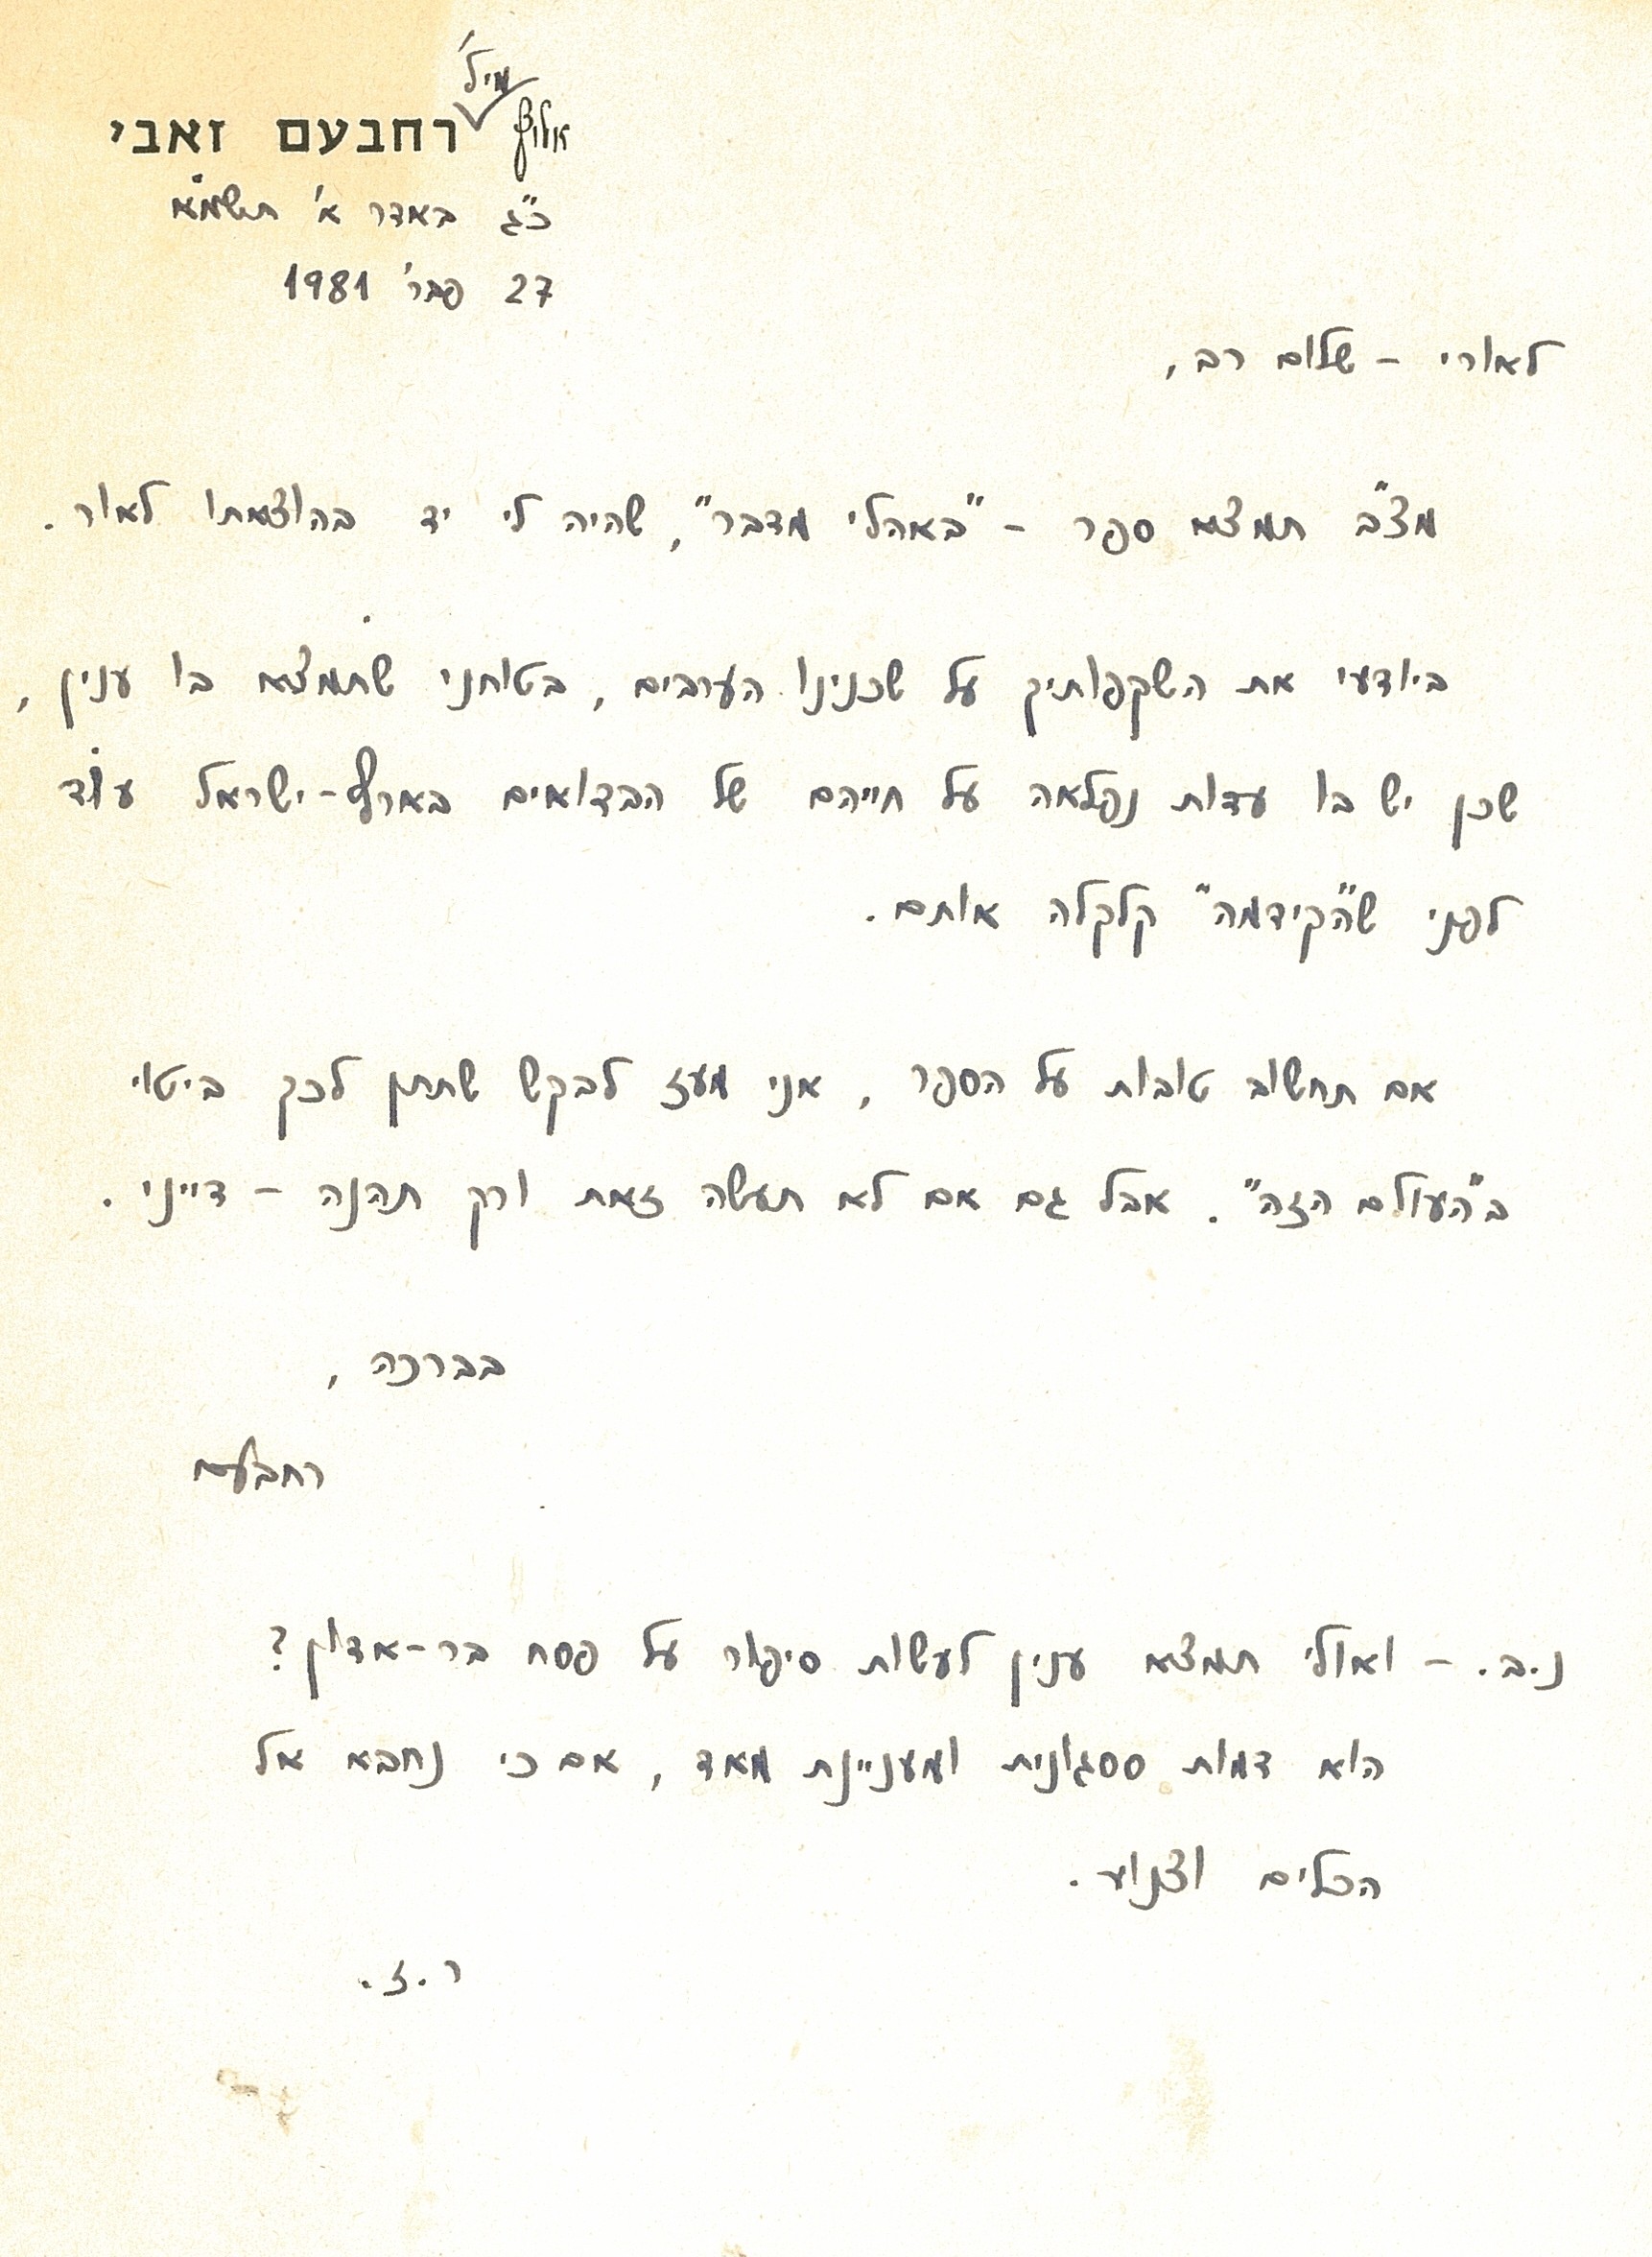 מיל'
אלוף רחבעם זאבי
כ"ג באדר א' תשמ"א
27 פבר' 1981
לאורי - שלום רב,
מצ"ב תמצא ספר - "באהלי מדבר", שהיה לי יד בהוצאתו לאור.
ביודעי את השקפותיך על שכנינו הערבים, בטוחני שתמצא בו ענין,
שכן יש בו עדות נפלאה על חייהם של הבדואים בארץ-ישראל עוד
לפני ש"הקידמה" קלקלה אותם.
אם תחשוב טובות על הספר, אני מעז לבקש שתתן לכך ביטוי
ב"העולם הזה". אבל גם אם לא תעשה זאת ורק תהנה - דייני.
בברכה,
רחבעם
נ.ב. - ואולי תמצא ענין לעשות סיפור על פסח בר-אדון?
הוא דמות ססגונית ומעניינת מאד, אם כי נחבא אל
הכלים וצנוע.
ר.ז.